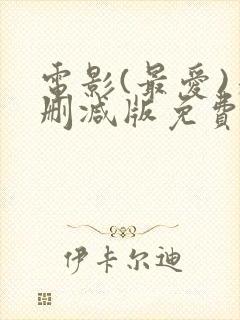 電影(最愛)
刪減版免費
伊卡尔迪